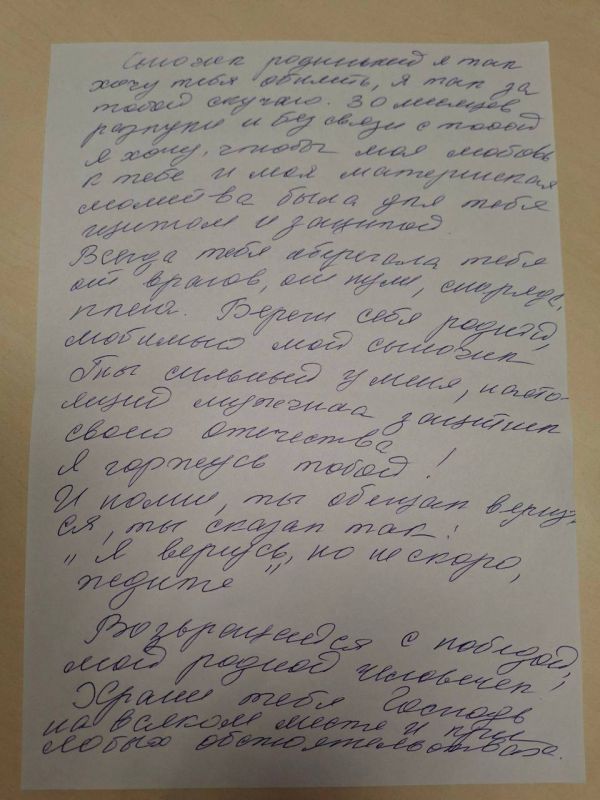 Сыночек родненький я так
хочу тебя обнять, я так за
тобой скучаю. 30 месяцев
разлуки и без связи с тобой
я хочу, чтобы моя любовь
к тебе и моя материнская
молитва была для тебя
щитом и защитой.
Всегда тебя оберегала тебя
от врагов, от пули, снаряда,
плена. Береги себя родной,
любимый мой сыночек
Ты сильный у меня, насто-
ящий мужчина защитник
своего отечества
Я горжусь тобой!
И помни, ты обещал вернут-
ся, ты сказал так:
"Я вернусь, но не скоро,
ждите"
Возвращайся с победой,
мой родной человечек!
Храни тебя Господь
на всяком месте и при
любых обстоятельствах.